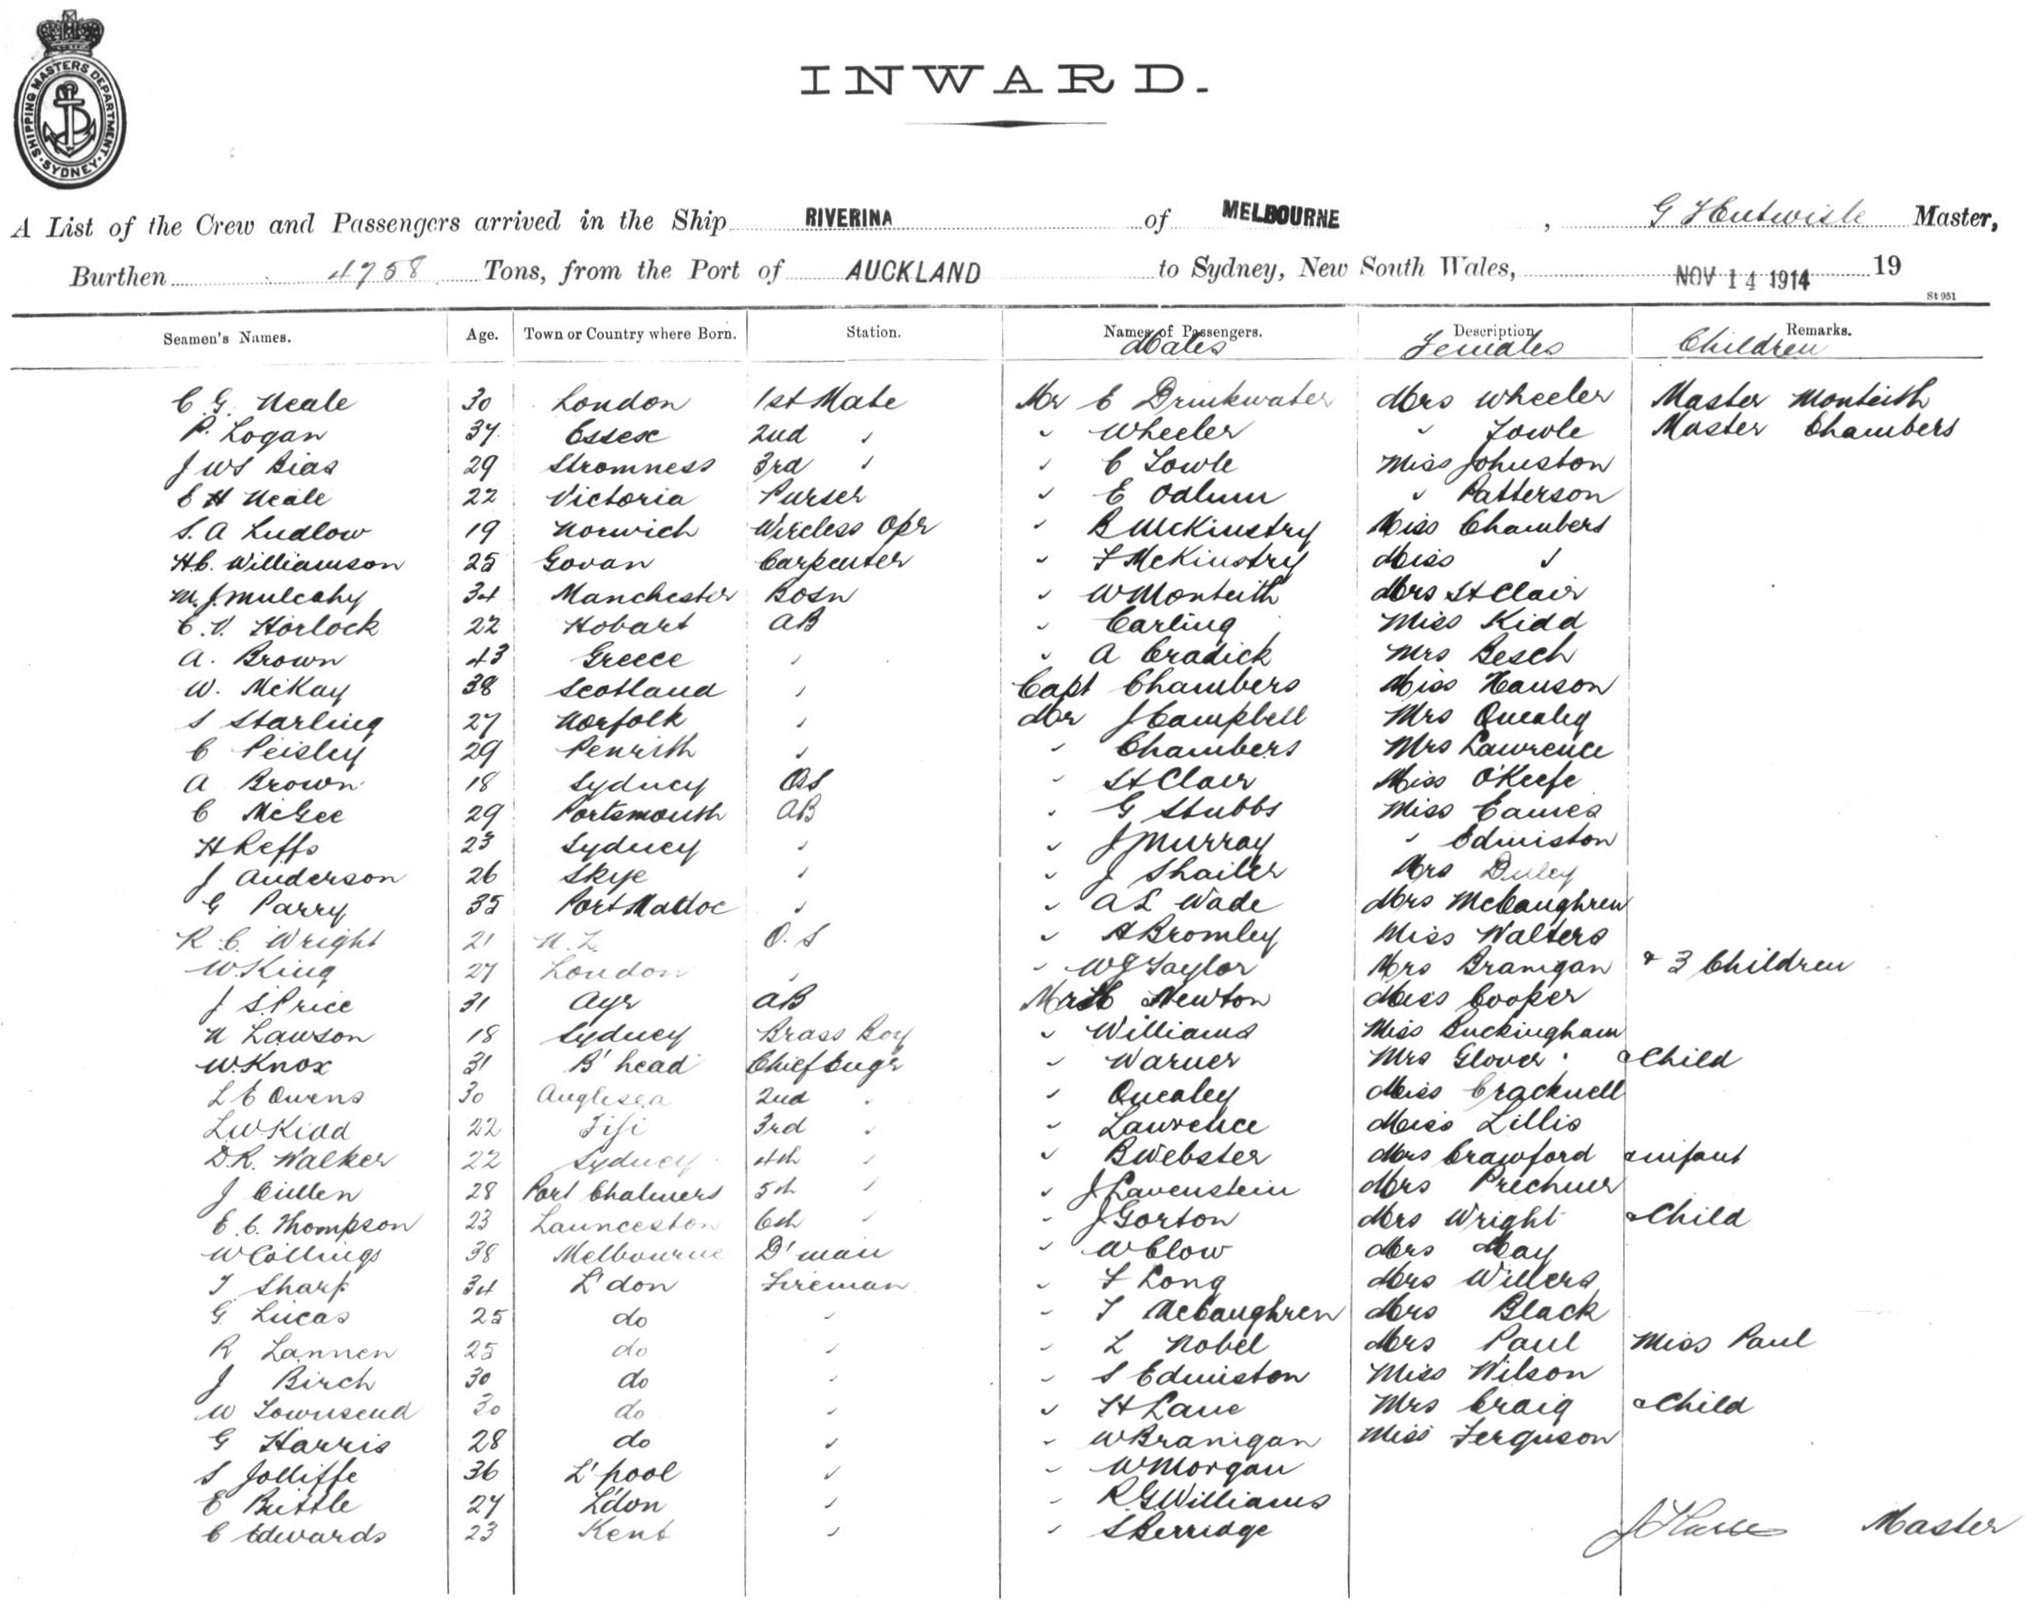 SHIPPING MASTERS DEPARTMENT. SYDNEY.
INWARD.
A List of the Crew and Passengers arrived in the Ship RIVERINA of MELBOURNE, G Entwisle Master,
Burthen 4758 Tons, from the Port of AUCKLAND to Sydney, New South Wales, NOV 14 1914 19
St 951
Seamen's Names. Age. Town or Country where Born. Station. Names of Passengers. Description Remarks.
Males Females Children
C. G. Neale 30 London 1st Mate Mr E Drinkwater Mrs Wheeler Master Monteith
P. Logan 37 Essex 2nd " " Wheeler " Towle Master Chambers
J W S Bias 29 Stromness 3rd " " C Towle Miss Johnston
E H Neale 22 Victoria Purser " E Odlum " Patterson
S. A Ludlow 19 Norwich Wireless Opr " B McKinstry Miss Chambers
H.C. Williamson 25 Govan Carpenter " F McKinstry Miss "
M. J. Mulcahy 34 Manchester Bosn " W Monteith Mrs St Clair
C. V. Horlock 22 Hobart AB " Carling Miss Kidd
A. Brown 43 Greece " " A Cradick Mrs Besch
W. McKay 38 Scotland " Capt Chambers Miss Hanson
S Starling 27 Norfolk " Mr J Campbell Mrs Quealey
C Peisley 29 Penrith " " Chambers Mrs Lawrence
A Brown 18 Sydney OS " St Clair Miss O'Keefe
C McGee 29 Portsmouth AB " G Stubbs Miss Eames
H Reffs 23 Sydney " " J Murray " Edmiston
J Anderson 26 Skye " " J Shailer Mrs Duley
G Parry 35 Port Madoc " " A L Wade Mrs McCaughren
R C. Wright 21 N. Z O. S " A Bromley Miss Walters
W. King 27 London " " W G Taylor Mrs Branigan & 3 Children
J S Price 31 Ayr AB Mr H Newton Miss Cooper
N Lawson 18 Sydney Brass Boy " Williams Miss Buckingham
W Knox 31 B'head Chief Engr " Warner Mrs Glover & Child
L E Owens 30 Anglesea 2nd " " Quealey Miss Cracknell
L W Kidd 22 Fiji 3rd " " Lawrence Miss Lillis
D. R. Walker 22 Sydney 4th " " B Webster Mrs Crawford & infant
J Cullen 28 Port Chalmers 5th " " J Lavenstein Mrs Prechner
E. C. Thompson 23 Launceston 6th " " J Gorton Mrs Wright & Child
W Collings 38 Melbourne D'man " W Clow Mrs May
T Sharp 34 L'don Fireman " F Long Mrs Willers
G Lucas 25 do " " T McCaughren Mrs Black
R Lannen 25 do " " L Nobel Mrs Paul Miss Paul
J Birch 30 do " " S Edmiston Miss Wilson
W Townsend 30 do " " H Lane Mrs Craig & Child
G Harris 28 do " " W Branigan Miss Ferguson
S Jolliffe 36 L'pool " " W Morgan
E Brittle 27 L'don " " R G Williams
C Edwards 23 Kent " " S Berridge
Master